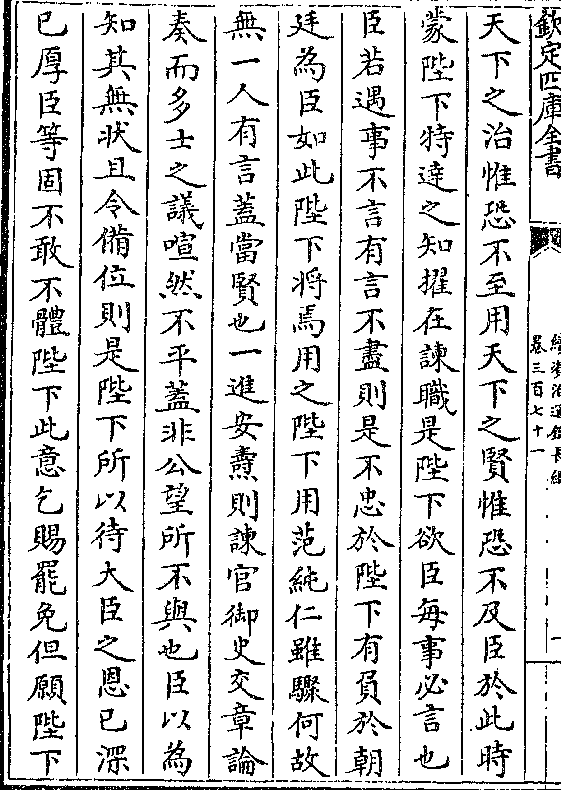 欽定四庫全書
續資治通鑑長編
卷三百七十一
天下之治惟恐不至用天下之賢惟恐不及臣於此時
蒙陛下特達之知擢在諫職是陛下欲臣每事必言也
臣若遇事不言有言不盡則是不忠於陛下有負於朝
廷為臣如此陛下将焉用之陛下用范純仁雖驟何故
無一人有言蓋當賢也一進安燾則諫官御史交章論
奏而多士之議喧然不平蓋非公望所不與也臣以為
知其無狀且令備位則是陛下所以待大臣之恩已深
已厚臣等固不敢不體陛下此意乞賜罷免但願陛下